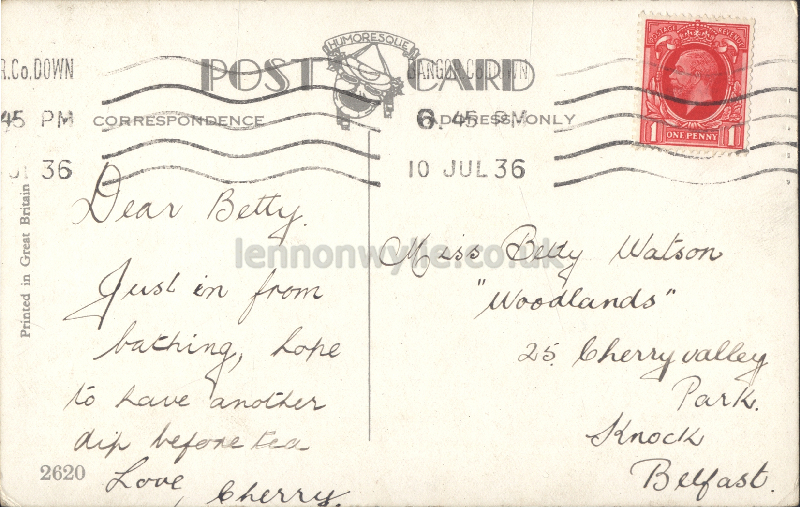 HUMORESQUE
POST CARD
R.Co.DOWN
BANGOR.Co.DOWN
45 PM
6.45 PM
CORRESPONDENCE
ADDRESS ONLY
36
10 JUL 36
POSTAGE REVENUE
1 ONE PENNY 1
Printed in Great Britain
Dear Betty.
Just in from
bathing, hope
to have another
dip before tea
Love, Cherry.
2620
Miss Betty Watson
"Woodlands"
25 Cherryvalley
Park.
Knock
Belfast.
lennonwylie.co.uk